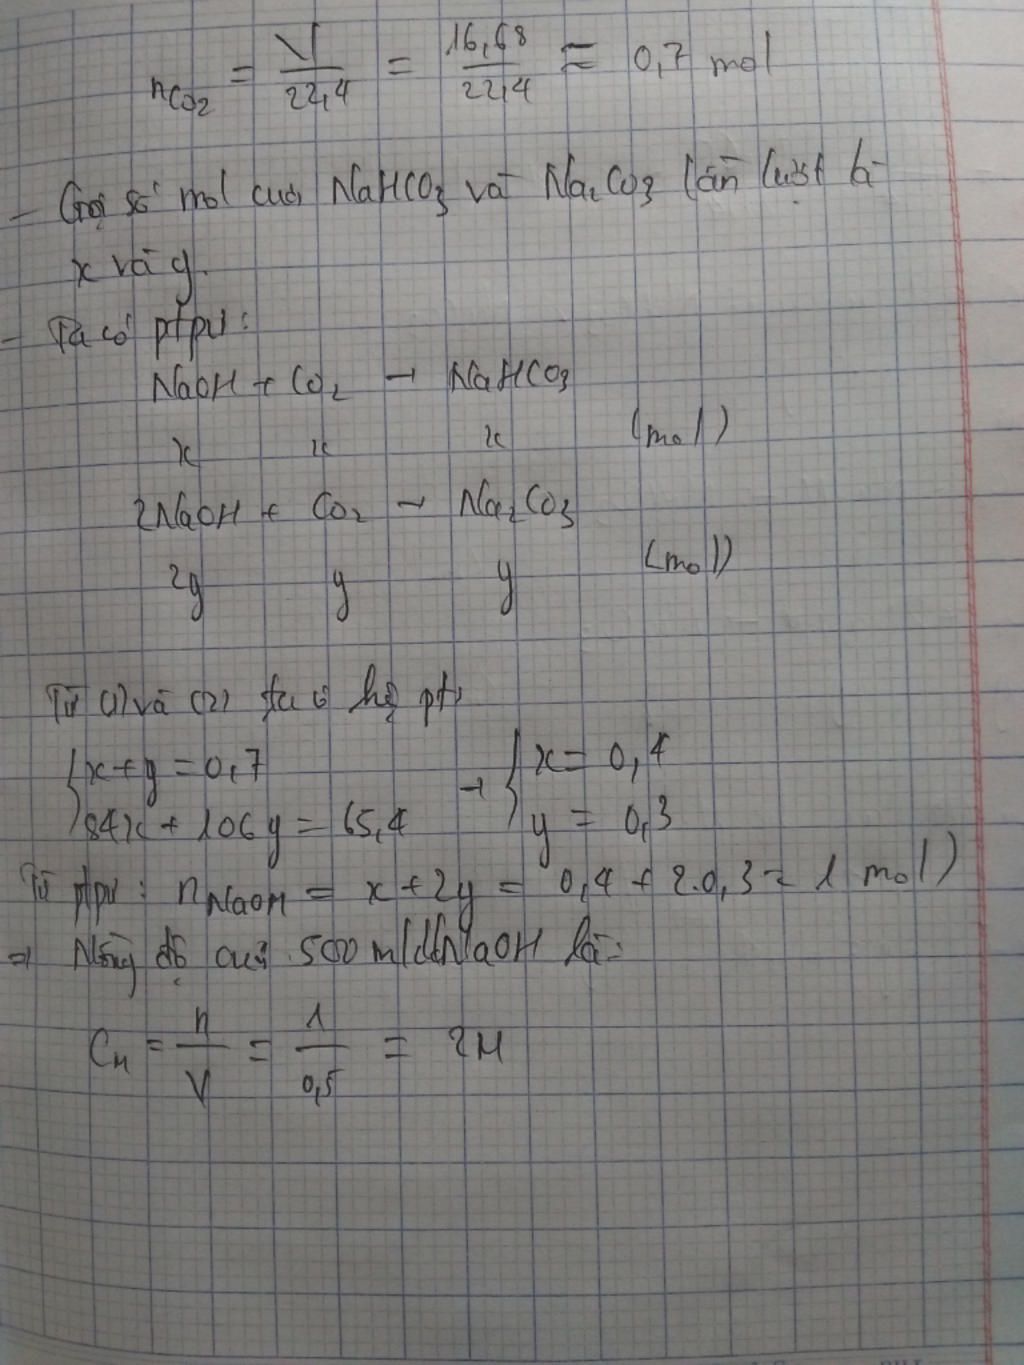 nCO2 = V/22,4 = 16,68/22,4 ≈ 0,7 mol
- Gọi số mol của NaHCO3 và Na2CO3 lần lượt là
x và y.
- Ta có ptpư:
NaOH + CO2 → NaHCO3
x x x (mol)
2NaOH + CO2 → Na2CO3
2y y y (mol)
Từ (1) và (2) ta có hệ pt:
{x+y = 0,7 → {x = 0,4
84x + 106y = 65,4 y = 0,3
Từ ptpư: nNaOH = x + 2y = 0,4 + 2.0,3 = 1 mol)
⇒ Nồng độ của 500 ml dd NaOH là:
CM = n/V = 1/0,5 = 2M